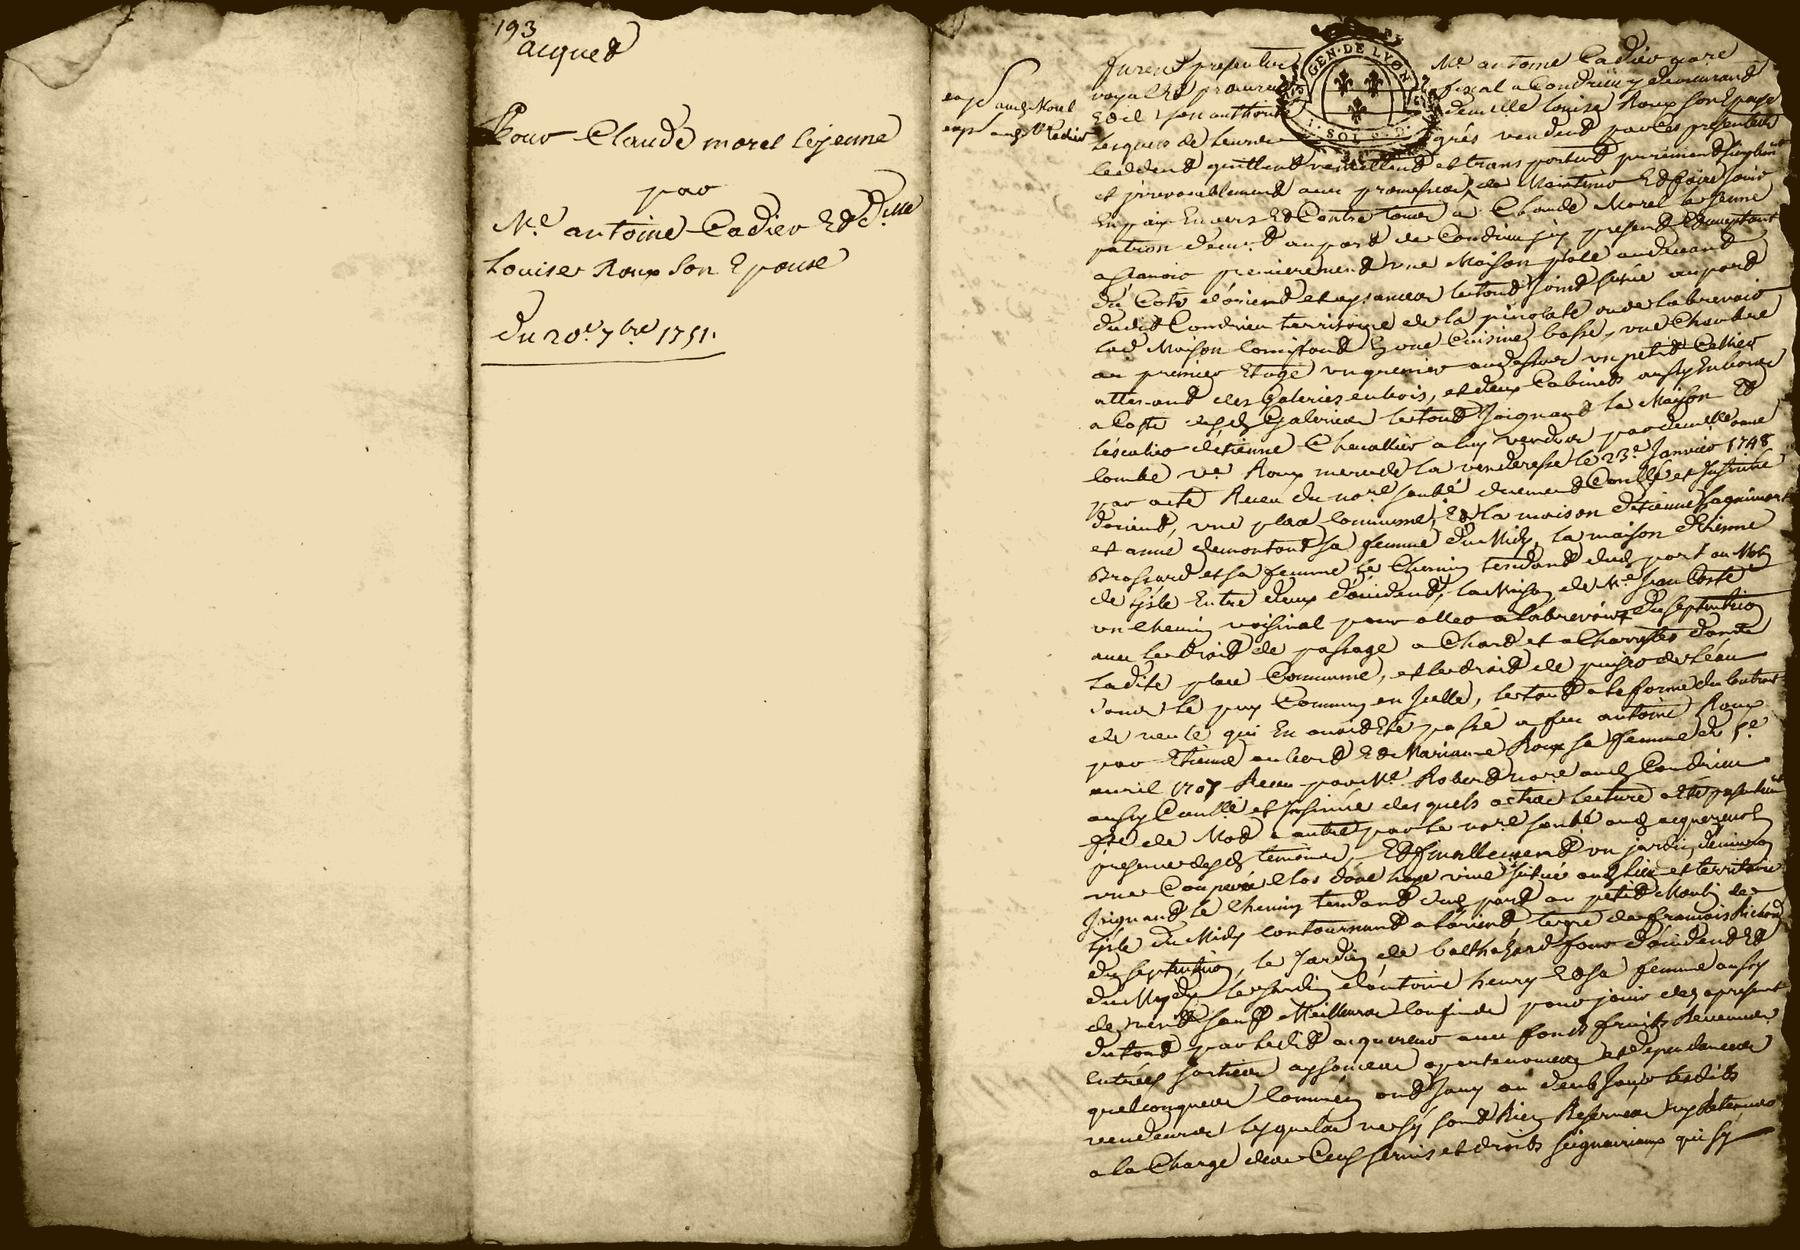 193
acquet
Pour Claude morel lejeune
par
Me antoine Cadier Et dlle
Louise Roux son Epouse
du 20e 7bre 1751.
GEN. DE LYON
SOL
exp. aud. Morel
exp. aud. Sr Cadier
furent presents Me antoine Cadier nore
royal Et procureur fiscal a Condrieu y demeurant
Et de son authorité demlle Louise Roux son Epouse
lesquels de leurs grés vendent par ces presentes
cedent quittent remettent et transportent purement simplemt
et jrrevocablement avec promesse de Maintenir Et faire jouir
En paix Envers Et Contre tous a Claude Morel le Jeune
patron demt au port de Condrieu jcy present Et acceptant
a sçavoir premierement une Maison
du Coté d'orient et aysances le tout joint situé au port
dudit Condrieu territoire de la pinolate ou de labrevoir
lad. Maison Consistant En une Cuisine basse, une Chambre
au premier Etage un grenier au dessus un petit Cellier
attenant des Galeries en bois, et deux Cabinets aussy En bois
a Coste desd. Galeries le tout Joignant la Maison Et
l'escalier d'étienne Chevallier a luy vendue par demlle anne
lombe ve Roux mere de la venderesse le 23e Janvier 1748
par acte Receu du nore soubé duement Conllé et Jnsinué
d'orient, une place Commune, Et la maison d'étienne
et anne demontant sa femme du Midy, la maison d'étienne
Brossard et sa femme Le Chemin tendant dud. port au
de l'jsle Entre deux d'occident, la Maison de Me Jean Coste
un chemin voisinal pour aller a labrevoir du septentrion
avec le droit de passage a Chard et a Charrettes dans
ladite place Commune, et le droit de puiser de l'eau
dans le puy Commun en Jcelle, le tout a la forme du Contrat
de vente qui En avoit Eté passé a feu antoine Roux
par Etienne aubert Et Marianne Roux sa femme le 5e
avril 1707 Receu par Me Robert nore aud. Condrieu
aussy Conllé et Jnsinué des quels actes lecture a Eté
fte de Mot a autre par le nore soubé aud. acquereur En
presence desd. temoins, Et finallement un jardin d'environ
une Couperée clos d'une haye vive situé aud. lieu et territoire
Joignant le Chemin tendant dud. port au petit Moulin de
l'jsle du Midy contournant a l'orient, terre de françois Richard
du septentrion, le Jardin de balthazard four d'occident Et
du Midy le Jardin d'antoine henry Et sa femme aussy
de vent sauf Meilleurs confins pour jouir dez a present
du tout par ledit acquereur avec fonds fruits Revenus
Entrées sorties aysances apartenances et dependances
quelconques Comme En ont Jouy ou deub Jouyr lesdits
vendeurs lesquels ne sy sont Rien Reservés ny Retenus
a la Charge des Cens servis et droits seigneuriaux qui sy